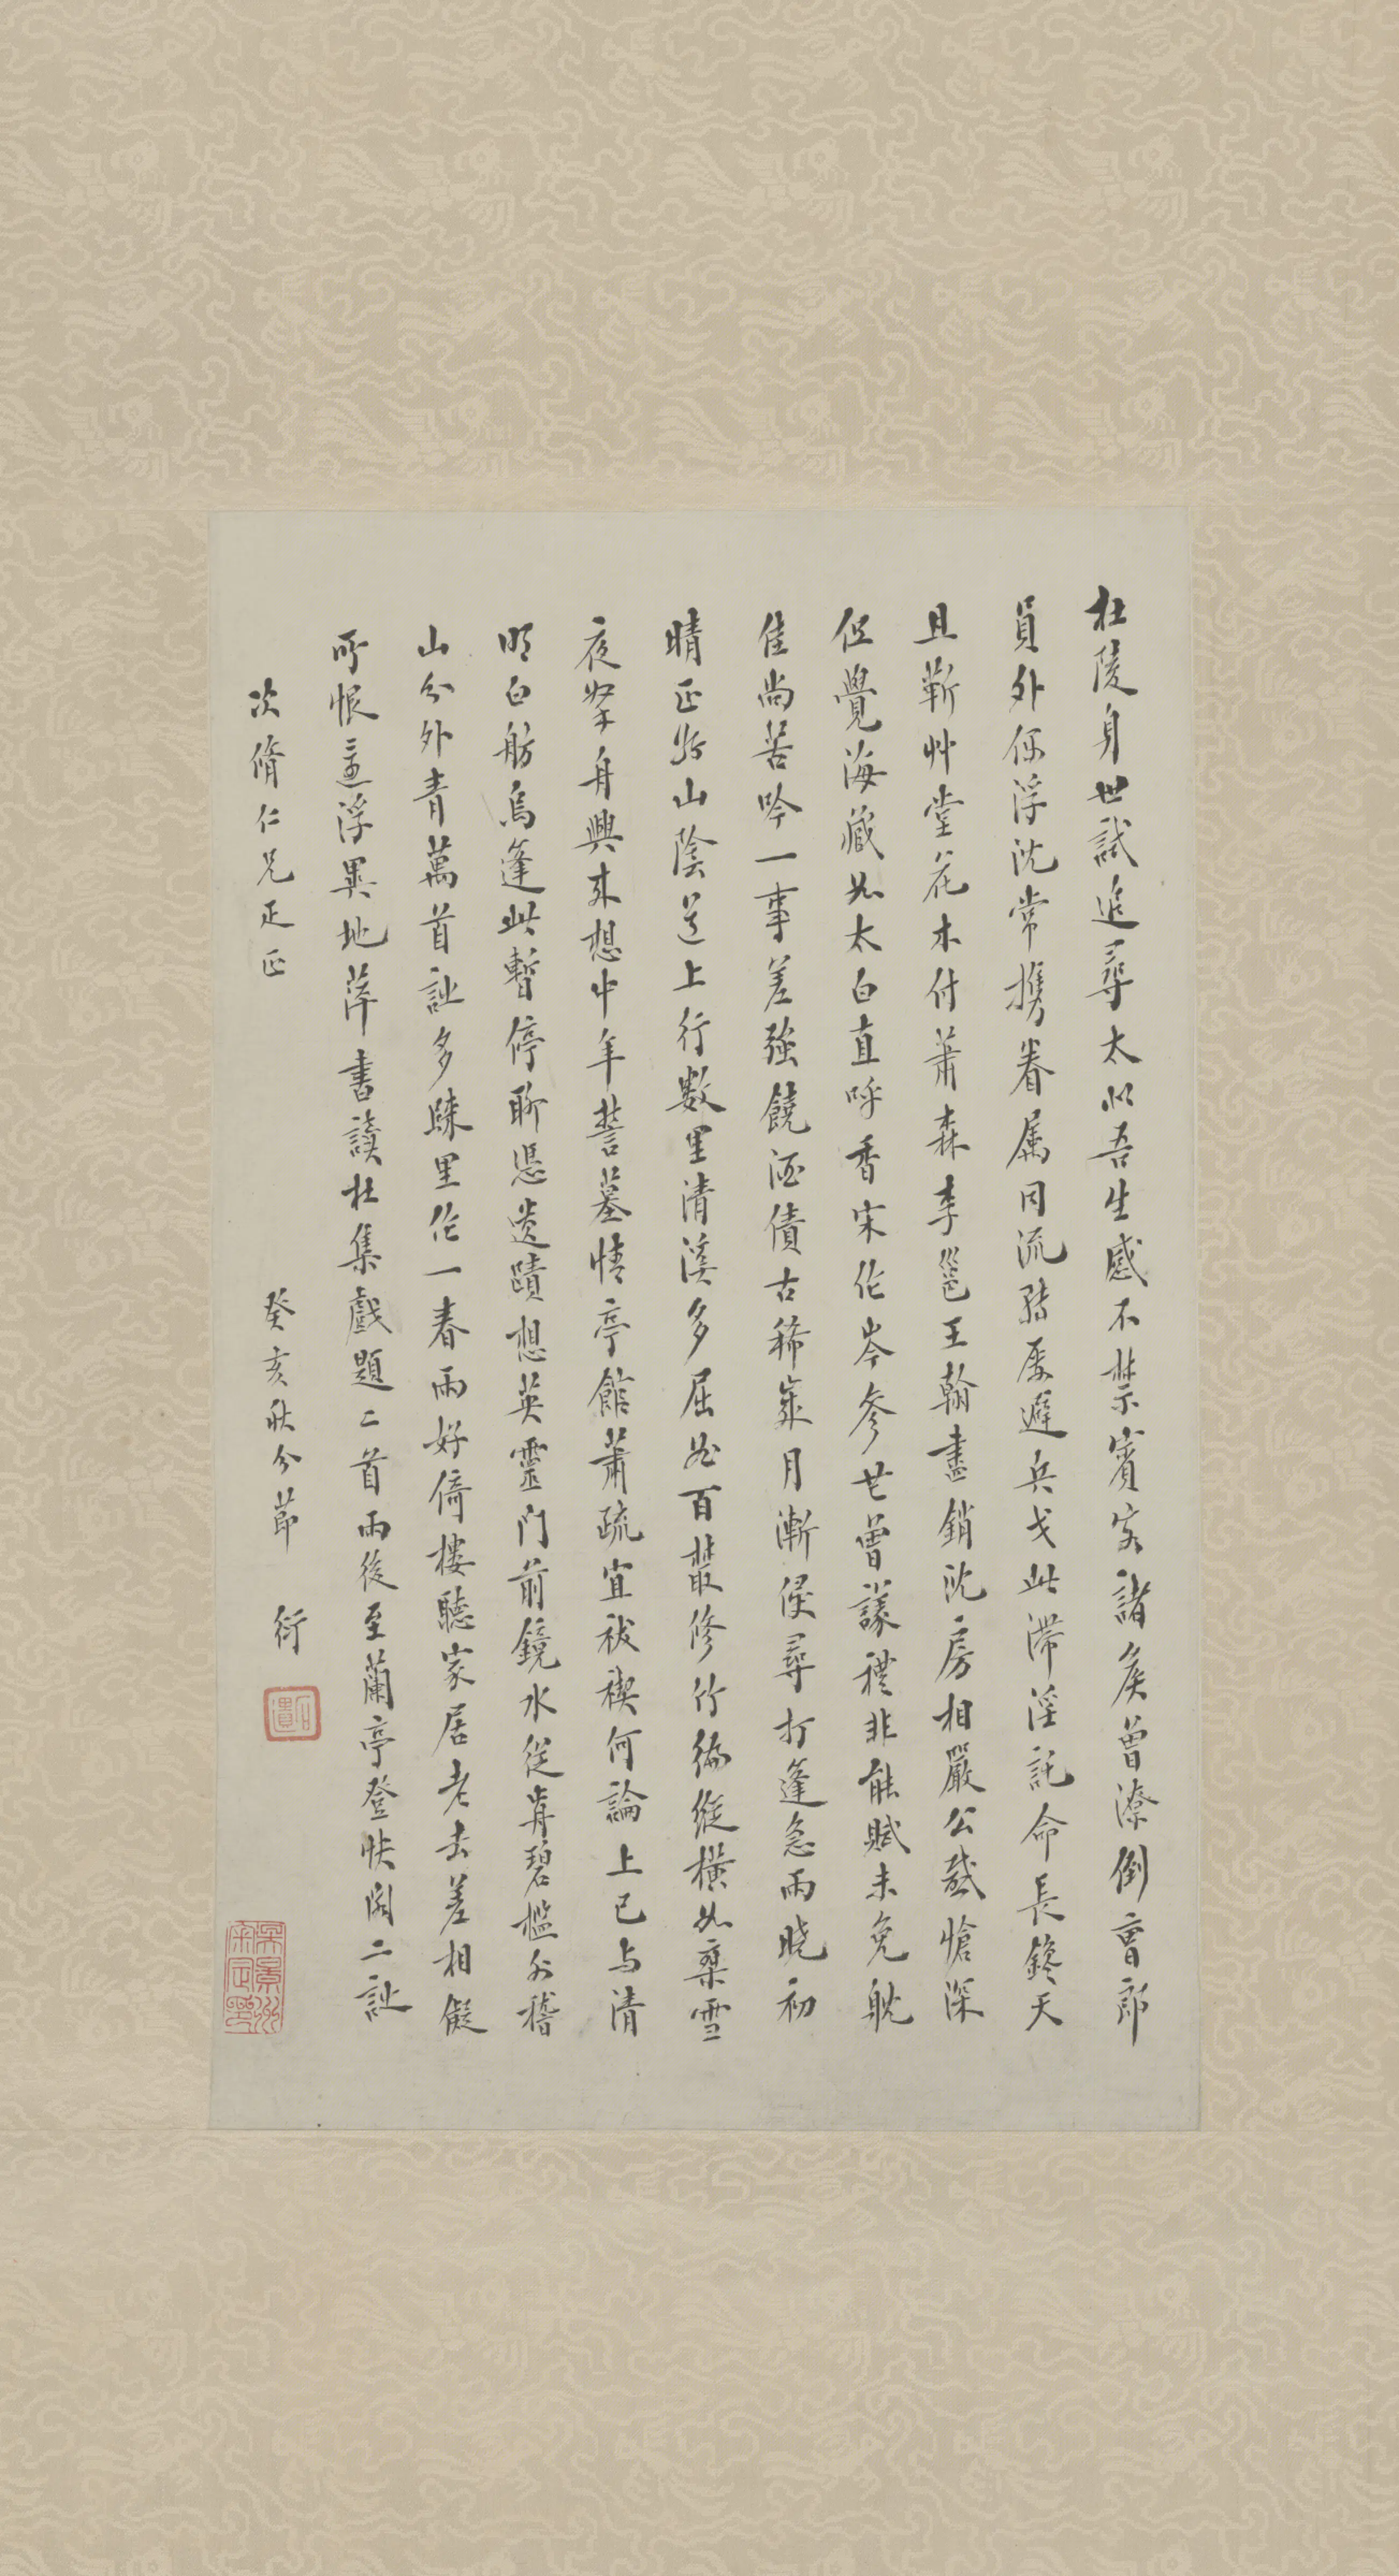 杜陵身世試追尋太似吾生感不禁賓客諸侯曾潦倒曹郎
員外浮沈常攜眷屬同流轉屢避兵戈此滯淫託命長鑱天
且靳艸堂花木付蕭森李邕王翰盡銷沈房相嚴公感愴深
但覺海藏如太白直呼香宋作岑參也曾議禮非能賦未免耽
佳尚苦吟一事差強饒酒債古稀歲月漸侵尋打篷急雨曉初
晴正於山陰道上行數里清溪多屈曲百叢修竹徧縱橫如乘雪
夜拏舟興來想中年誓墓情亭館蕭疏宜祓禊何論上巳与清
明白舫烏篷此暫停聊憑遺蹟想英靈門前鏡水從青碧檻外稽
山分外青萬首詩多騄里作一春雨好倚樓聽家居老去差相儗
所恨還浮異地萍書讀杜集戲題二首雨後至蘭亭登快閣二詩
次脩仁兄正正
癸亥秋分節 衍
石遺